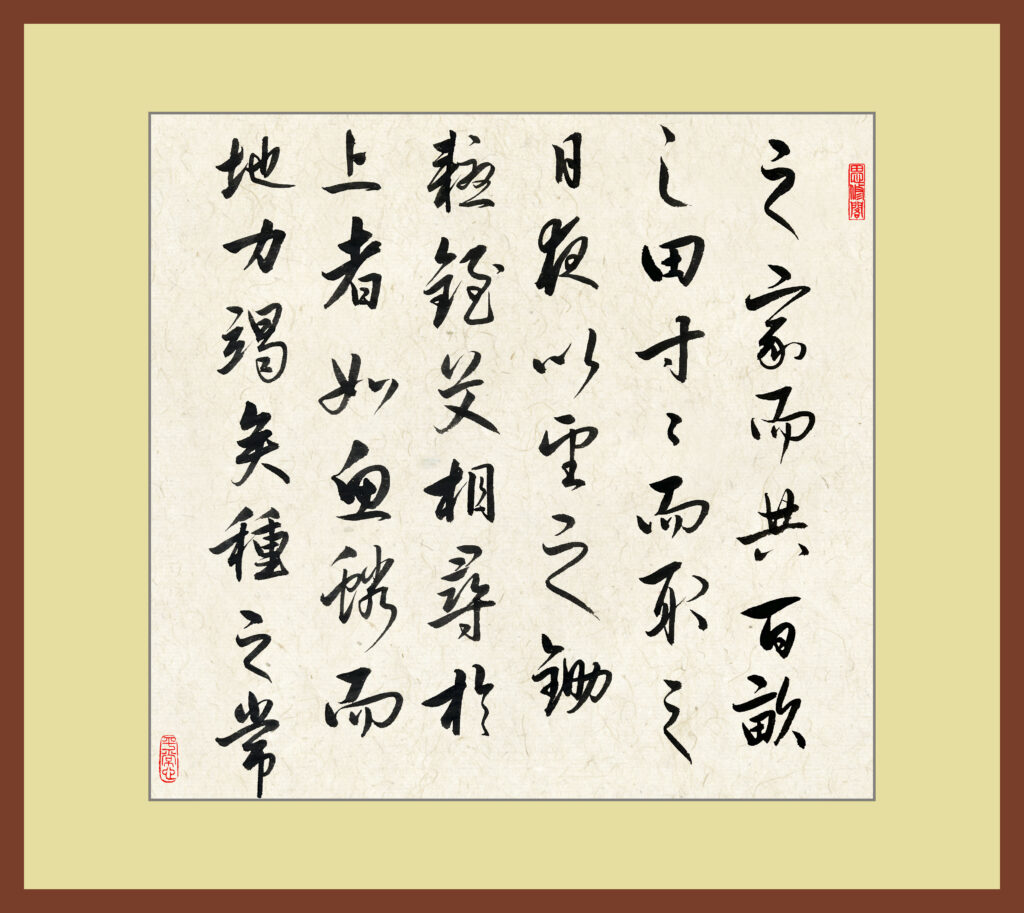 思修閣
之家而共百畝
之田寸々而取之
日夜以望之鋤
耰銍艾相尋於
上者如魚鱗而
地力竭矣種之常
平常心